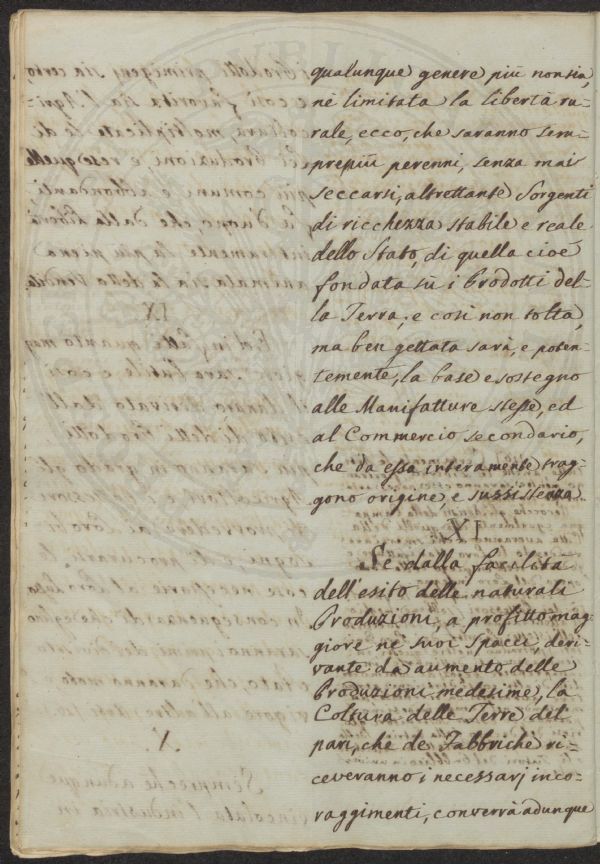 qualunque genere più non sia,
nè limitata la libertà ru-
rale, ecco, che saranno sem-
prepiù perenni, senza mai
seccarsi, altrettante Sorgenti
di ricchezza stabile e reale
dello Stato, di quella cioè
fondata sù i Prodotti del-
la Terra, e così non tolta,
ma ben gettata sarà, e poten-
temente, la base e sostegno
alle Manifatture stesse, ed
al Commercio secondario,
che da essa interamente trag-
gono origine, e sussistenza
XI
Se dalla facilità
dell'esito delle naturali
Produzioni, a profitto mag-
giore ne' suoi Spacci, deri-
vante da aumento delle
Produzioni medesime, la
Coltura delle Terre del
pari, che de Fabbriche ri-
ceveranno i necessarj inco-
raggimenti, converrà adunque